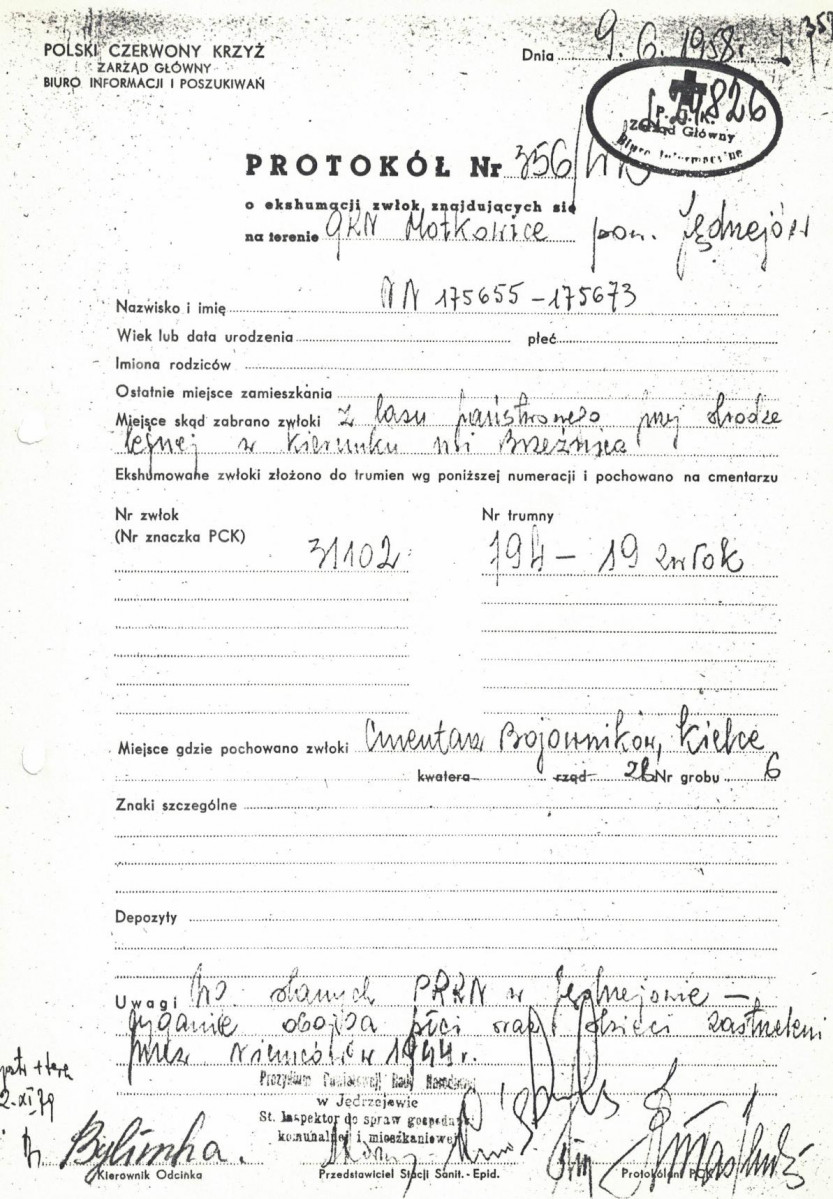 POLSKI CZERWONY KRZYŻ
ZARZĄD GŁÓWNY
BIURO INFORMACJI I POSZUKIWAŃ
Dnia 9. 6. 1958 r.
P.C.K.
Zarząd Główny
Biuro Informacyjne
PROTOKÓŁ Nr 356/
o ekshumacji zwłok znajdujących się
na terenie GRN Motkowice pow. Jędrzejów
Nazwisko i imię NN 175655 - 175673
Wiek lub data urodzenia płeć
Imiona rodziców
Ostatnie miejsce zamieszkania
Miejsce skąd zabrano zwłoki z lasu państwowego przy drodze
leśnej w kierunku wsi Brzeźnica
Ekshumowane zwłoki złożono do trumien wg poniższej numeracji i pochowano na cmentarzu
Nr zwłok Nr trumny
(Nr znaczka PCK)
31102 194 - 19 zwłok
Miejsce gdzie pochowano zwłoki Cmentarz Bojowników, Kielce
kwatera rząd 2b Nr grobu 6
Znaki szczególne
Depozyty
Uwagi Wg. danych PRRN w Jędrzejowie -
cyganie obojga płci oraz dzieci zastrzeleni
przez Niemców w 1944 r.
Prezydium Powiatowej Rady Narodowej
w Jędrzejowie
St. Inspektor do spraw gospodarki
komunalnej i mieszkaniowej
2-XI 79
Bylimka.
Kierownik Odcinka Przedstawiciel Stacji Sanit. - Epid. Protokólant PCK